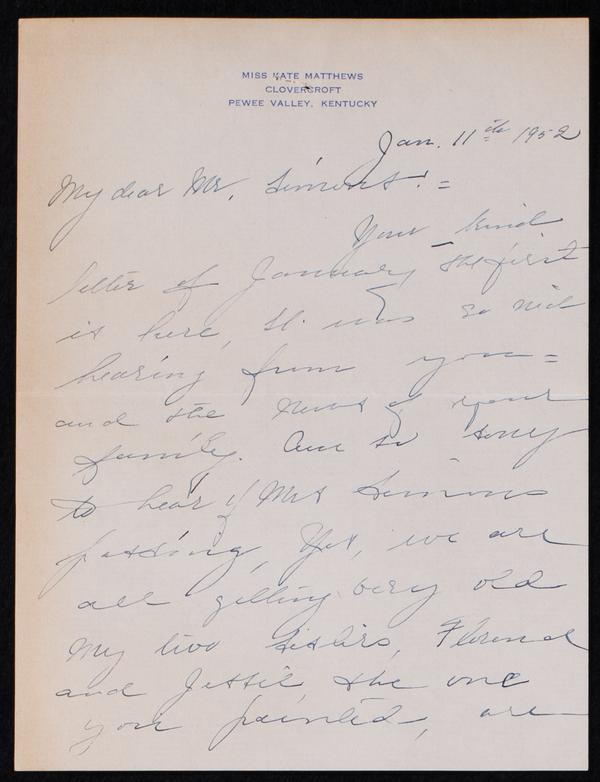 MISS KATE MATTHEWS
CLOVERCROFT
PEWEE VALLEY, KENTUCKY
Jan. 11th 1952
My dear Mr. Simons: =
Your kind
letter of January the first
is here, It was so nice
hearing from you =
and the news of your
family. Am so sorry
to hear of Mrs Simons
passing, Yes, we are
all getting very old
My two Sisters, Florence
and Jessie, the one
you painted, are